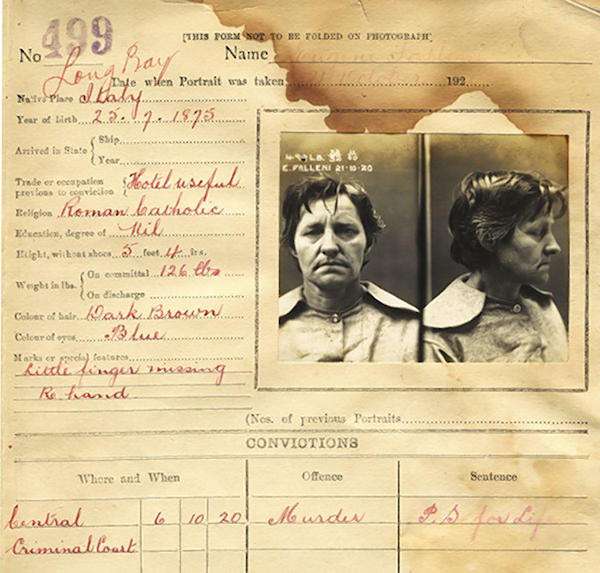 No 499
[THIS FORM NOT TO BE FOLDED ON PHOTOGRAPH]
Name
Long Bay
Date when Portrait was taken 192
Native Place Italy
Year of birth 25. 7. 1875
Arrived in State { Ship
Year
Trade or occupation previous to conviction { Hotel useful
Religion Roman Catholic
Education, degree of Nil
Height, without shoes 5 feet 4 ins.
Weight in lbs. { On committal 126 lbs
On discharge
Colour of hair Dark Brown
Colour of eyes Blue
Marks or special features
Little finger missing
Rt. hand
499LB
E. FALLENI 21-10-20
(Nos. of previous Portraits
CONVICTIONS
Where and When Offence Sentence
Central 6 10 20 Murder P.S. for Life
Criminal Court